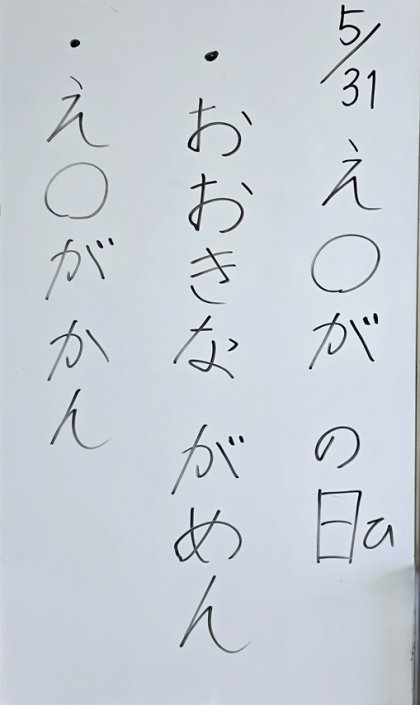 5/31 え〇が の日ひ
・おおきな がめん
・え〇がかん